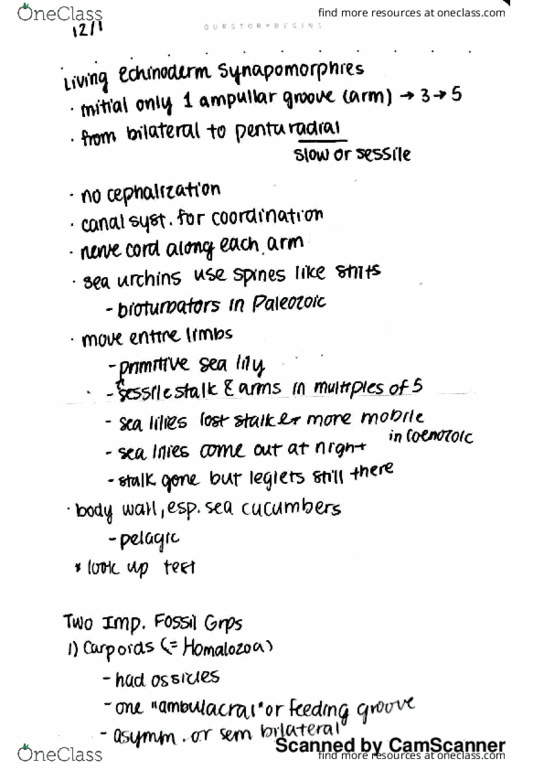 OneClass
find more resources at oneclass.com
12/1
OURSTORYBEGINS
Living Echinoderm Synapomorphies
· initial only 1 ampullar groove (arm) → 3 → 5
· from bilateral to penturadial
slow or sessile
· no cephalization
· canal syst. for coordination
· nerve cord along each arm
· sea urchins use spines like stilts
- bioturbators in Paleozoic
· move entire limbs
- primitive sea lily
- sessile stalk & arms in multiples of 5
- sea lilies lost stalk & more mobile
in Coenozoic
- sea lilies come out at night
- stalk gone but leglets still there
· body wall, esp. sea cucumbers
- pelagic
* look up test
Two Imp. Fossil Grps
1) Carpoids (= Homalozoa)
- had ossicles
- one "ambulacral" or feeding groove
- asymm. or sem bilateral
Scanned by CamScanner
OneClass
find more resources at oneclass.com